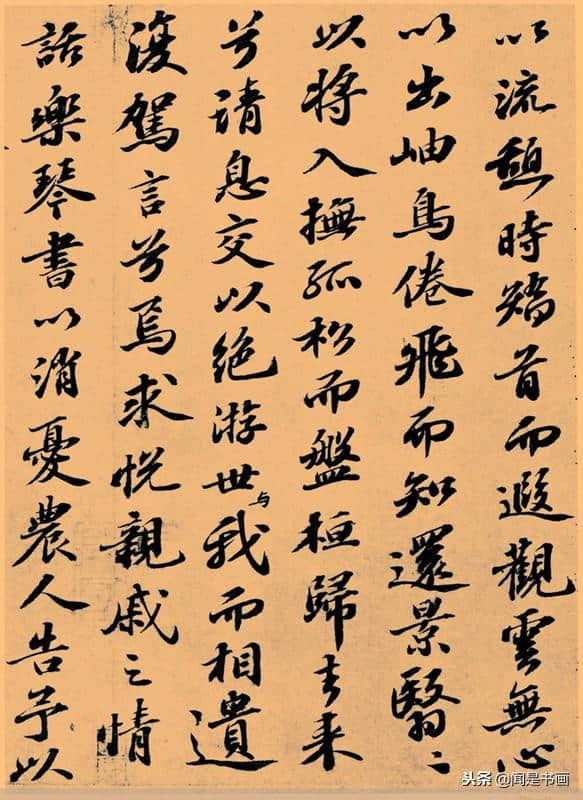 以流憩時矯首而遐觀雲無心
以出岫鳥倦飛而知還景翳〻
以将入撫孤松而盤桓歸去来
兮請息交以絕游世与我而相遺
復駕言兮焉求悦親戚之情
話樂琴書以消憂農人告予以
头条 @闻是书画